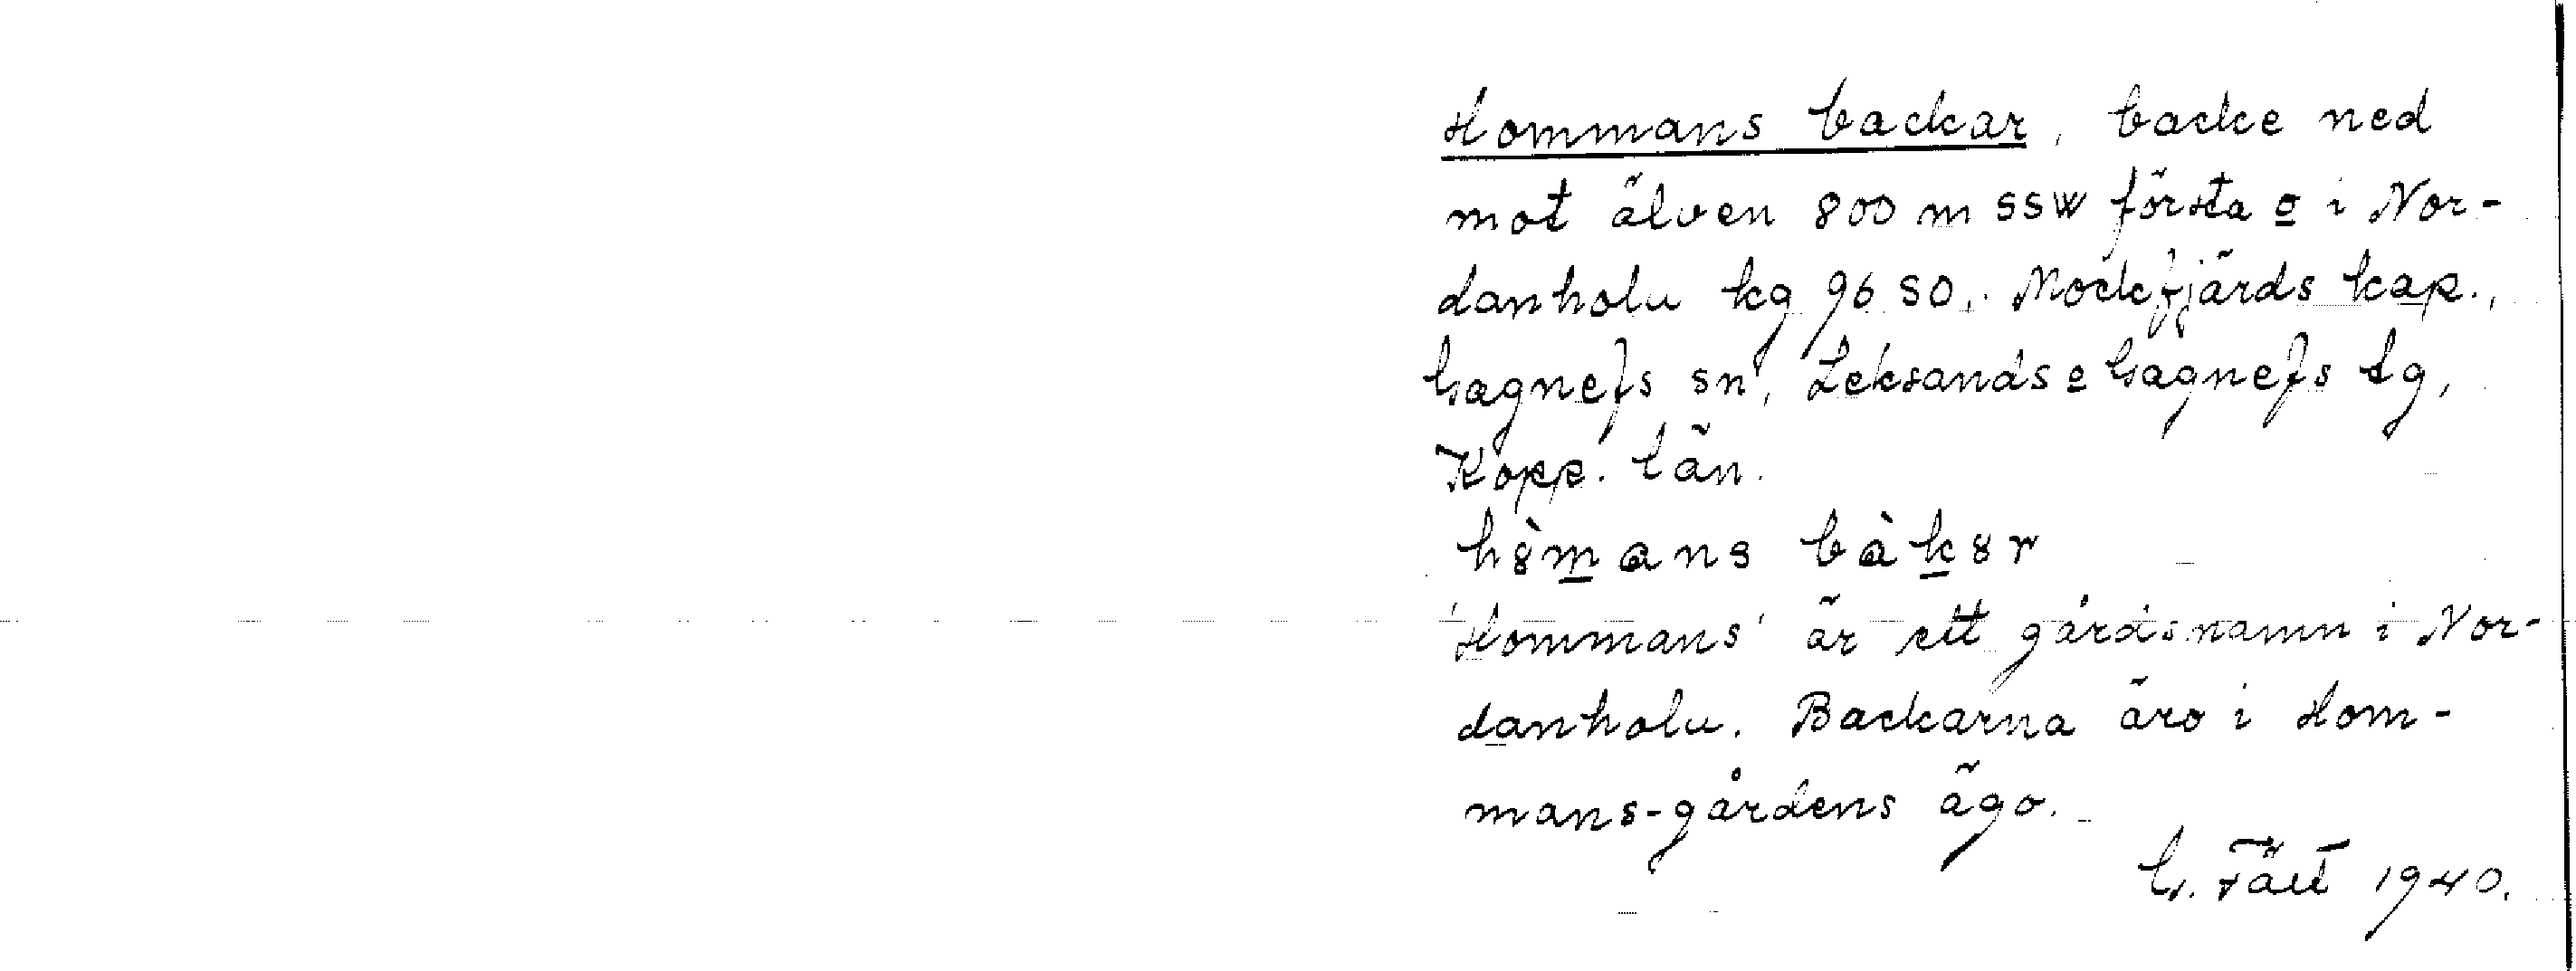 Hommans backar, backe ned
mot älven 800 m SSW första o i Nor-
danholu kg 96 SO. Mockfjärds kap.,
Gagnefs sn, Leksands o Gagnefs tg,
Kopp. län.
h8̀mans bàk8r
'Hommans' är ett gårdsnamn i Nor-
danholu. Backarna äro i Hom-
mans-gårdens ägo.
G. Fält 1940.